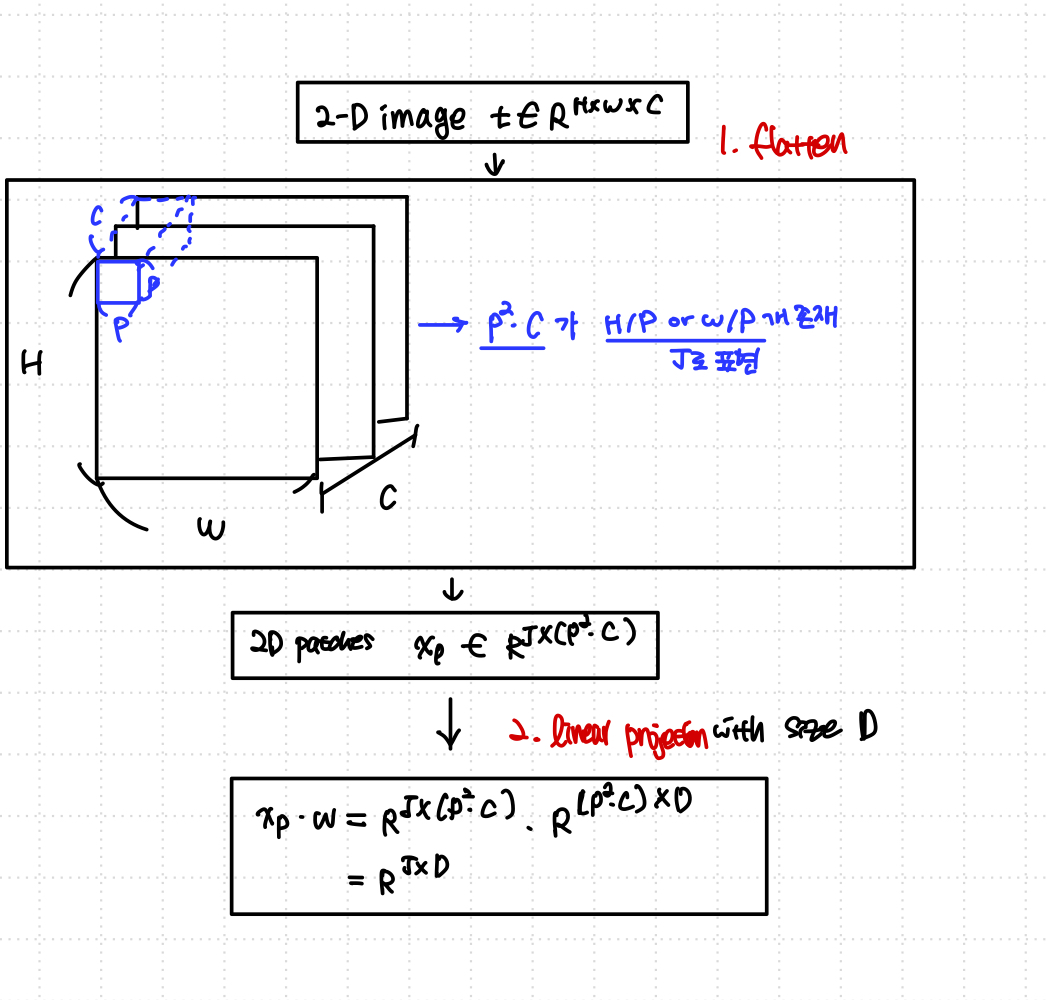 2-D image t ∈ R^{H×W×C}
1. flatten
C
P
P
H
W
C
→ P²·C가 H/P or W/P개 존재
J로 표현
2D patches x_p ∈ R^{J×(P²·C)}
2. linear projection with size D
x_p · W = R^{J×(P²·C)} · R^{(P²·C)×D}
= R^{J×D}